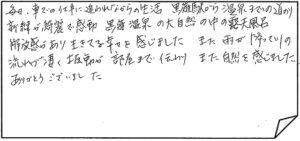 毎日、車での仕事に追われながらの生活 黒薙駅から温泉までの道のり
新緑が綺麗で感動 黒薙温泉の大自然の中の露天風呂
解放感があり生きてる幸せを感じました また雨が降っていて川の
流れが凄く振動が部屋まで伝わり また自然を感じました
ありがとうございました